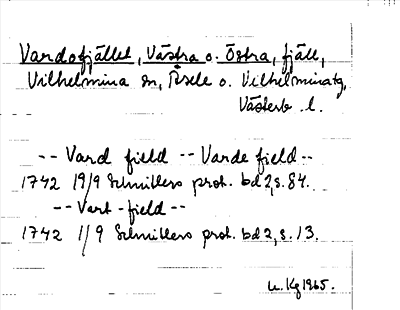 Vardofjället, Västra o. Östra, fjäll,
Vilhelmina sn, Åsele o. Vilhelmina tg,
Västerb. l.
-- Vard field -- Varde field --
1742 19/9 Schnitlers prot. bd 2, s. 84.
-- Vart-field --
1742 1/9 Schnitlers prot. bd 2, s. 13.
u. Kg 1965.